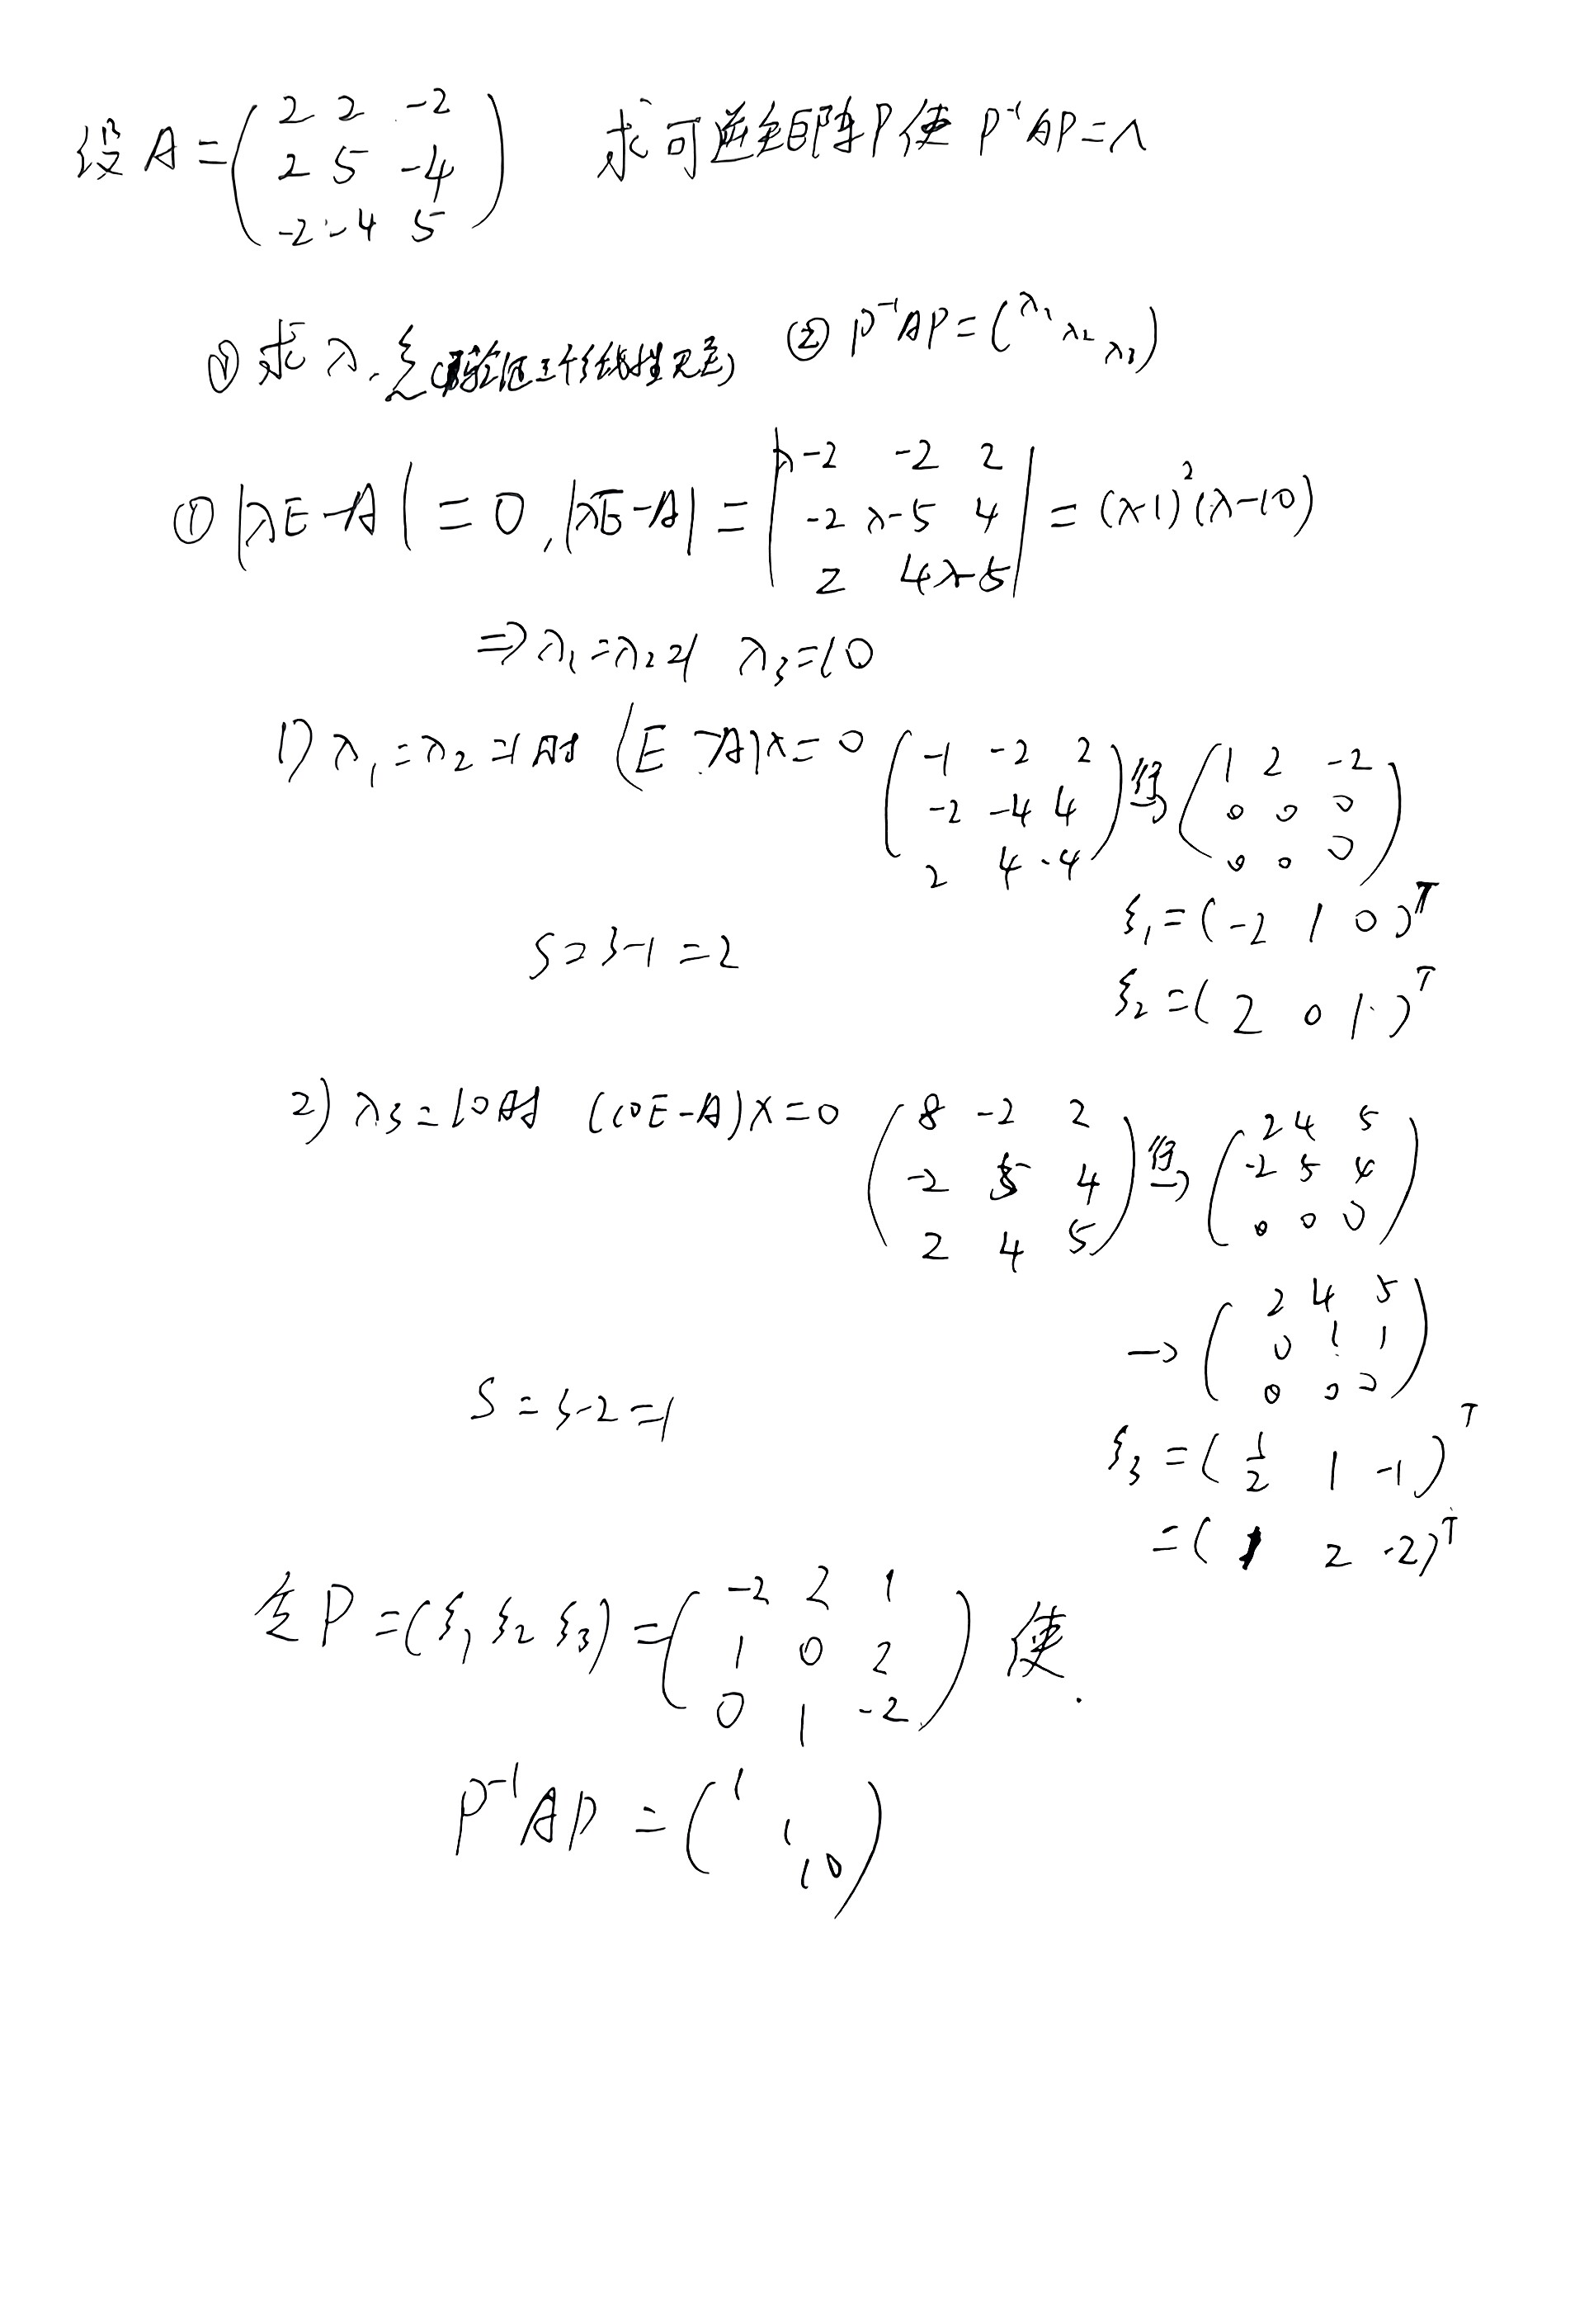 设 A = ( 2 2 -2 ; 2 5 -4 ; -2 -4 5 ) 求可逆矩阵P使 P⁻¹AP=Λ
① 求λ,ξ(验证三个ξ线性无关) ② P⁻¹AP=(λ₁ λ₂ λ₃)
① |λE-A|=0, |λE-A| = | λ-2 -2 2 ; -2 λ-5 4 ; 2 4 λ-5 | = (λ-1)²(λ-10)
⇒ λ₁=λ₂=1 λ₃=10
1) λ₁=λ₂=1时 (E-A)x=0 ( -1 -2 2 ; -2 -4 4 ; 2 4 -4 ) 行→ ( 1 2 -2 ; 0 0 0 ; 0 0 0 )
ξ₁=(-2 1 0)ᵀ
S=3-1=2
ξ₂=(2 0 1)ᵀ
2) λ₃=10时 (10E-A)x=0 ( 8 -2 2 ; -2 5 4 ; 2 4 5 ) 行→ ( 2 4 5 ; -2 5 4 ; 0 0 0 )
→ ( 2 4 5 ; 0 1 1 ; 0 0 0 )
S=3-2=1
ξ₃=(1/2 1 -1)ᵀ
=(1 2 -2)ᵀ
令P=(ξ₁ ξ₂ ξ₃)=( -2 2 1 ; 1 0 2 ; 0 1 -2 ) 使.
P⁻¹AP=( 1 1 10 )